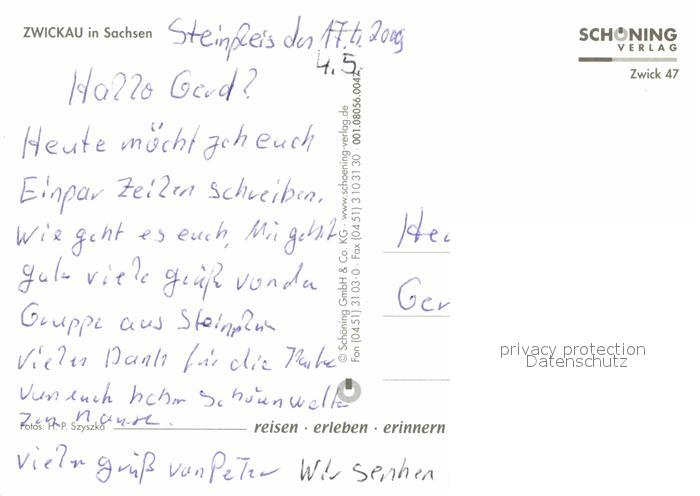 ZWICKAU in Sachsen
Steinpleis den 17.4.2009
4.5.
SCHÖNING
VERLAG
Zwick 47
Hallo Gerd!
Heute möcht ich euch
Einpar Zeilen schreiben.
Wie geht es euch, Mir geht
gute viele grüße von der
Gruppe aus Steinplis
Vielen Dank für die Karte
von euch
zu Hause.
viele grüß von Peter Wir senhen
© Schöning GmbH & Co. KG · www.schoening-verlag.de
Fon (04 51) 31 03-0 · Fax (04 51) 3 10 31 30 · 001.08056.004
Her
Ger
privacy protection
Datenschutz
Fotos: H.-P. Szyszka
reisen · erleben · erinnern